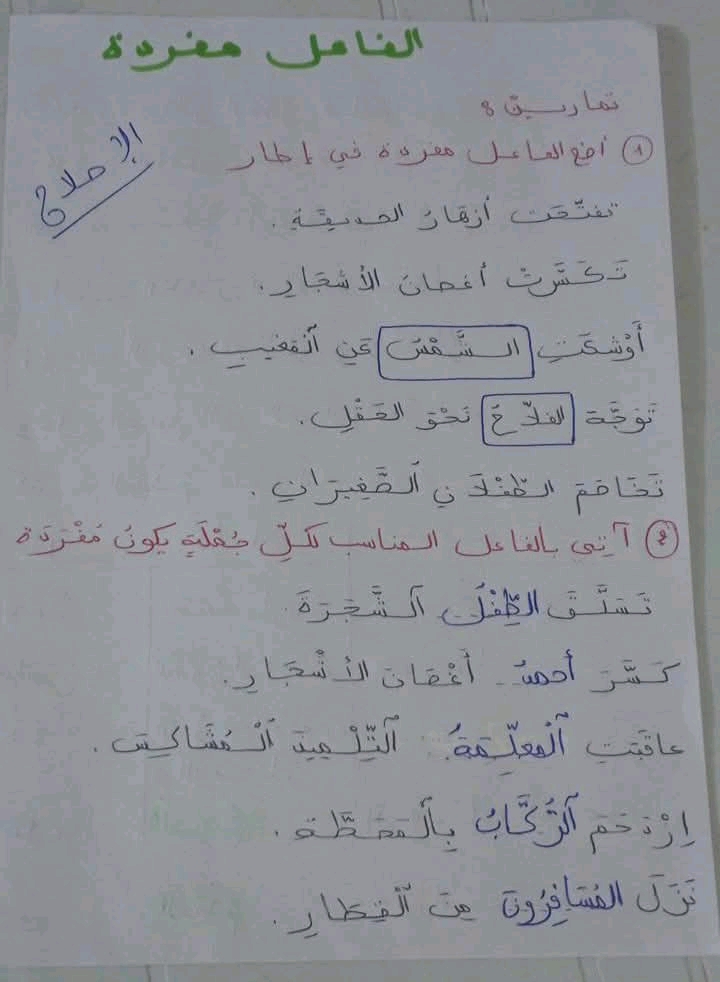 الفاعل مفردة
تمارين :
الإصلاح
1 أضع الفاعل مفردة في إطار
تفتّحت أزهارُ الحديقةِ .
تَكَسَّرتْ أغصانُ الأشجَارِ .
أَوْشكَتِ الشَّمْسُ عَنِ المَغيبِ .
تَوَجَّهَ الفلاّحُ نَحْوَ الحَقْلِ .
تَخَاصَمَ الطّفْلاَنِ الصَّغِيرَانِ .
2 آتِي بالفاعل المناسب لكلّ جُمْلَةٍ يكونُ مُفْرَدَة
تَسَلَّقَ الطِّفْلُ الشَّجَرَةَ .
كَسَّرَ أحمدُ أغْصَانَ الأشْجَارِ .
عاقَبَتِ المُعلِّمَةُ التِّلْمِيذَ المُشَاكِسَ .
اِزْدَحَمَ الرُّكَّابُ بِالْمَحَطَّةِ .
نَزَلَ المُسَافِرُونَ مِنَ القِطَارِ .